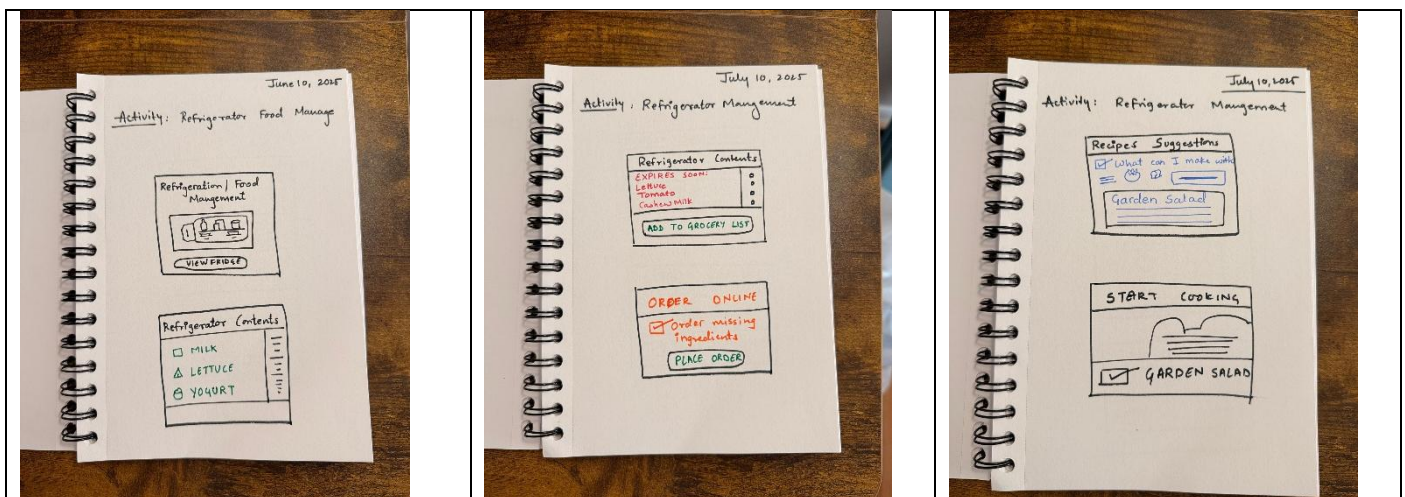 June 10, 2025
Activity: Refrigerator Food Manage
Refrigeration/ Food
Mangement
VIEW FRIDGE
Refrigerator Contents
MILK
LETTUCE
YOGURT
July 10, 2025
Activity: Refrigerator Mangement
Refrigerator Contents
EXPIRES SOON:
Lettuce
Tomato
Cashew Milk
ADD TO GROCERY LIST
ORDER ONLINE
Order missing
ingredients
PLACE ORDER
July 10, 2025
Activity: Refrigerator Mangement
Recipes Suggestions
What can I make with
Garden Salad
START COOKING
GARDEN SALAD